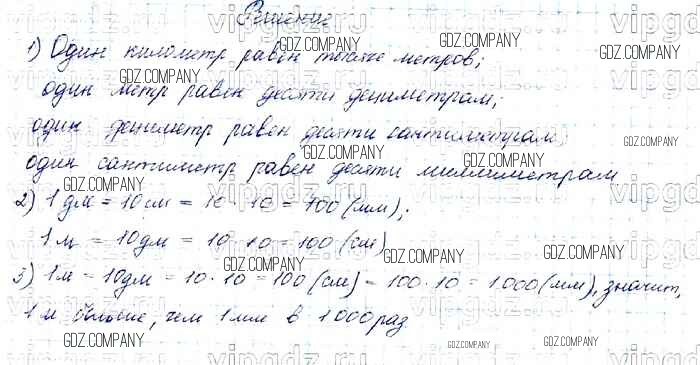 Решение
1) Один километр равен тысяче метров;
один метр равен десяти дециметрам;
один дециметр равен десяти сантиметрам
один сантиметр равен десяти миллиметрам
2) 1 дм = 10 см = 10 · 10 = 100 (мм);
1 м = 10 дм = 10 · 10 = 100 (см)
3) 1 м = 10 дм = 10 · 10 = 100 (см) = 100 · 10 = 1000 (мм), значит,
1 м больше, чем 1 мм в 1000 раз
vipgdz.ru
GDZ.COMPANY